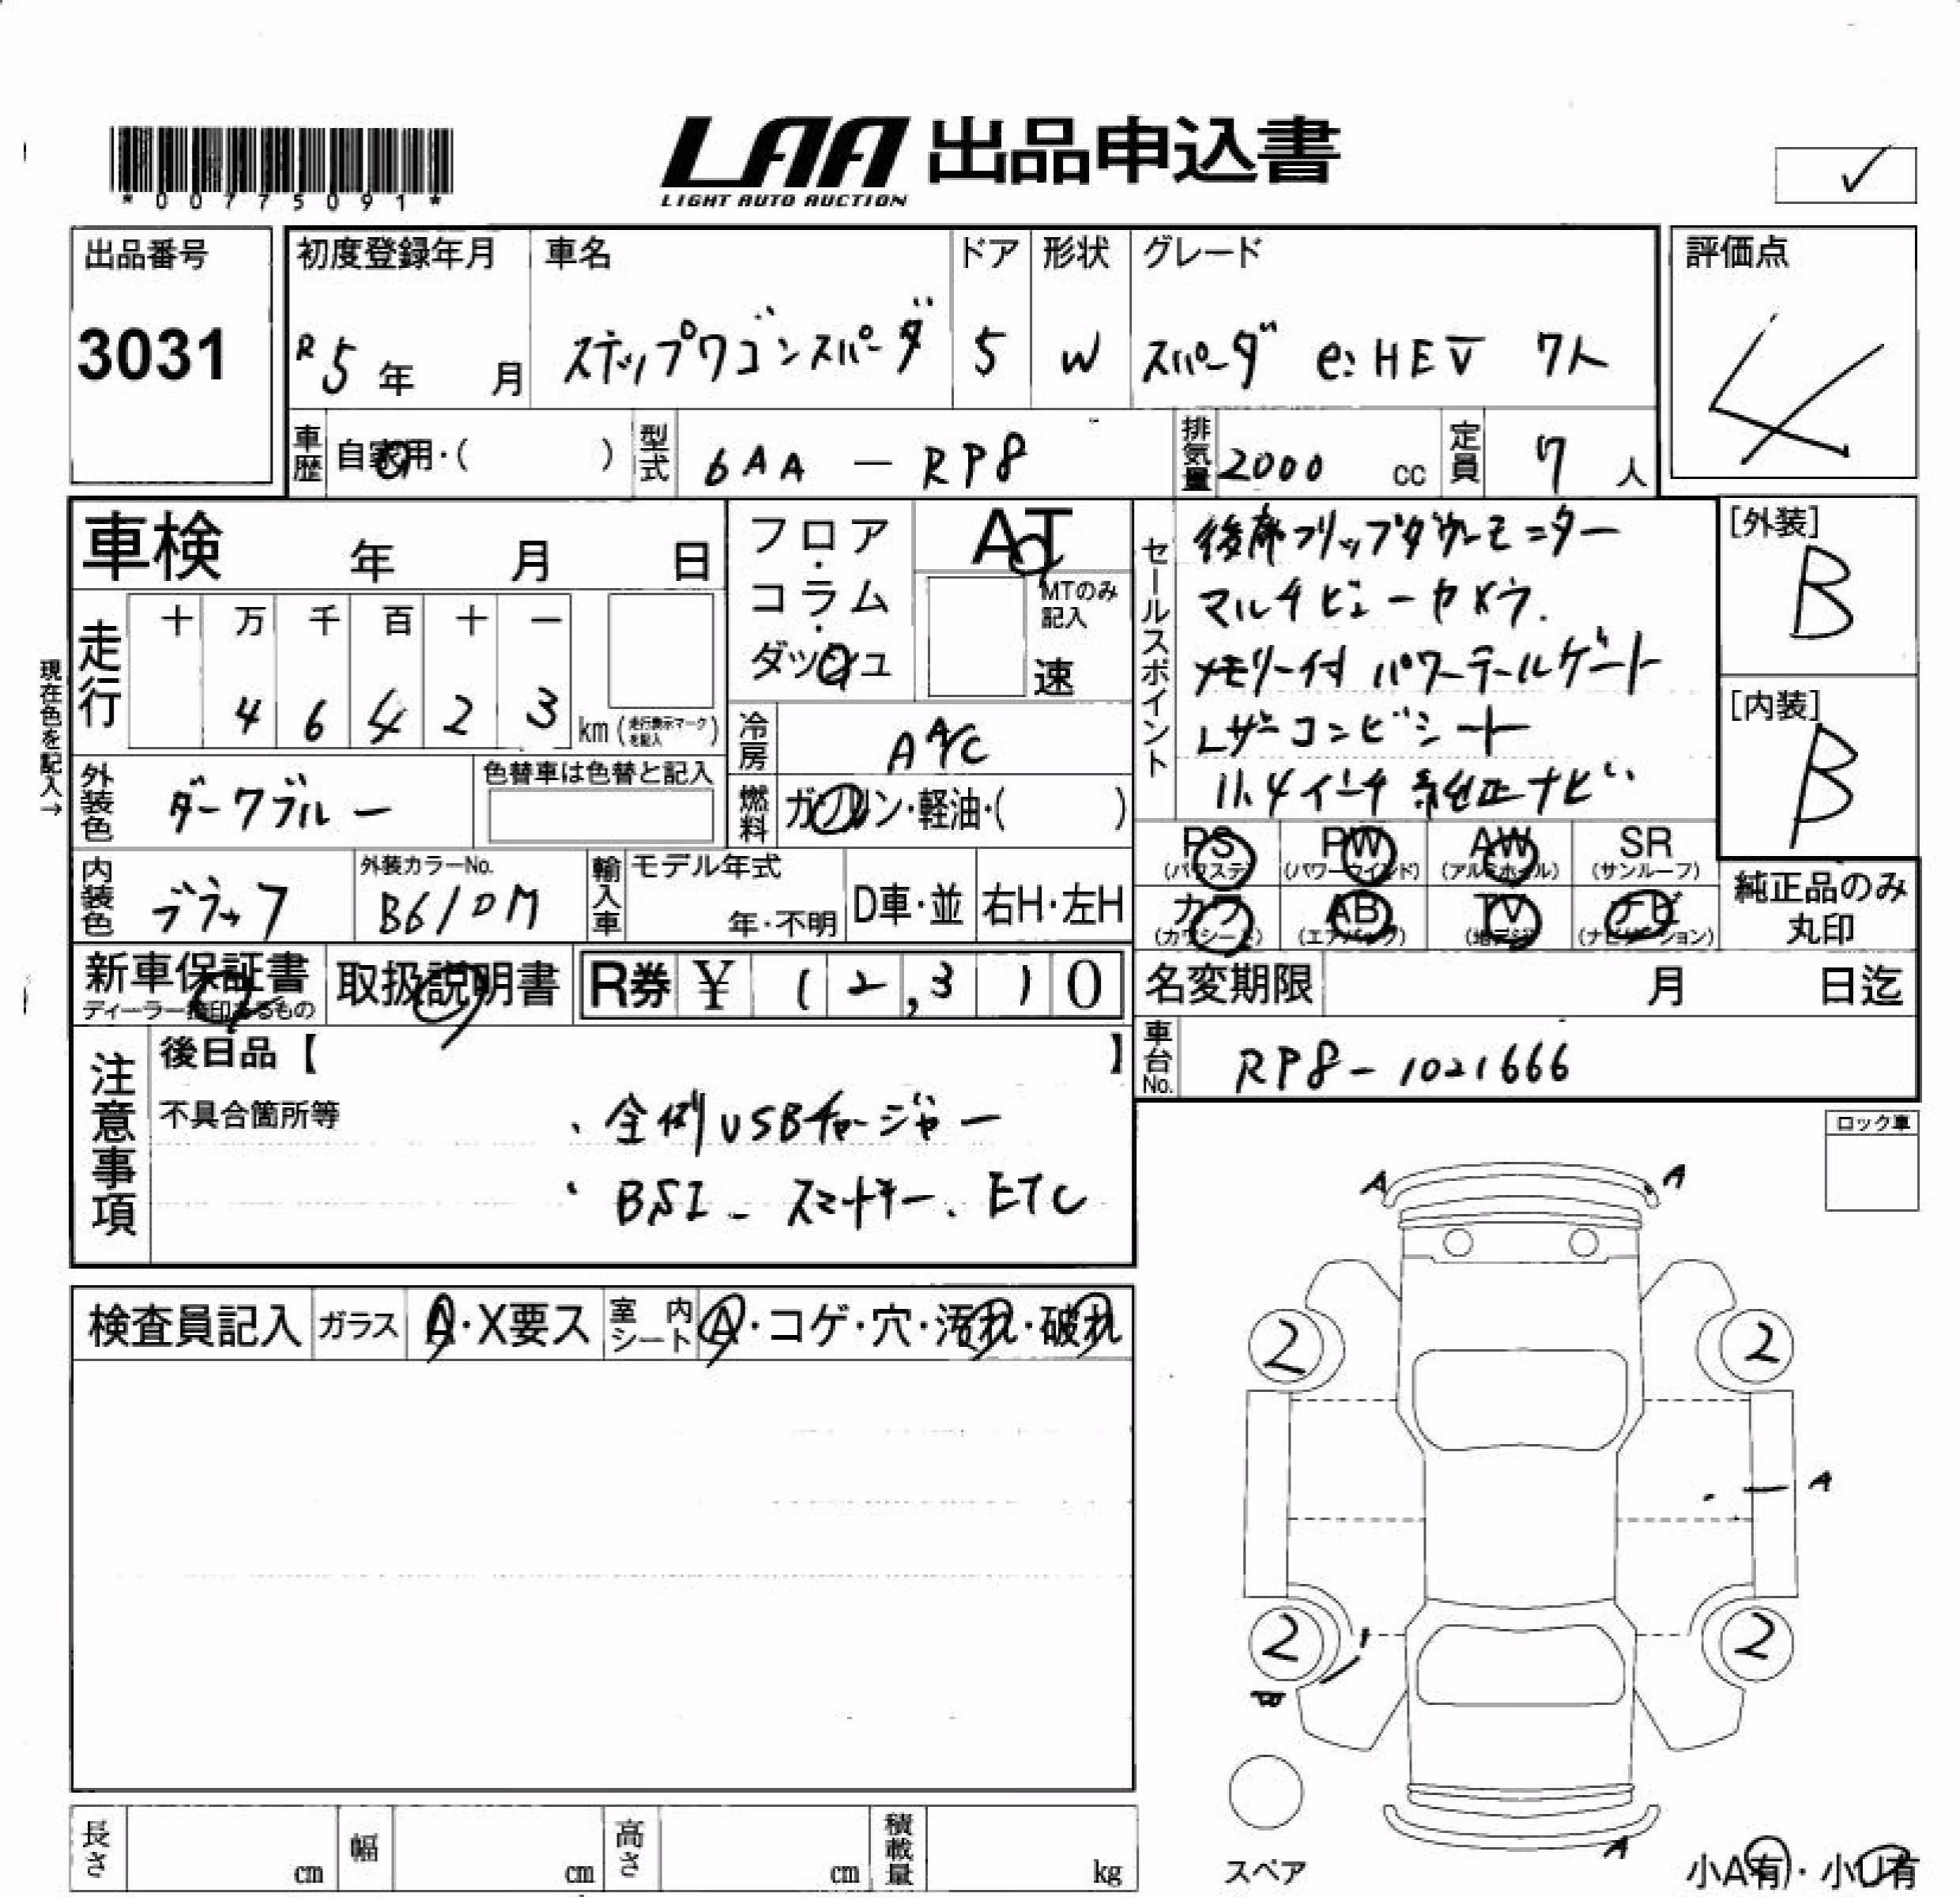 *00775091*
LAA 出品申込書
LIGHT AUTO AUCTION
✓
出品番号 3031
初度登録年月 R5年 月
車名 ステップワゴンスパーダ
ドア 5
形状 W
グレード スパーダ e:HEV 7人
評価点 4
車歴 自家用・( )
型式 6AA — RP8
排気量 2000 cc
定員 7人
車検 年 月 日
フロア・コラム・ダッシュ
AT
MTのみ記入
速
セールスポイント
後席フリップダウンモニター
マルチビューカメラ.
メモリー付 パワーテールゲート
レザーコンビシート
11.4インチ 純正ナビ
[外装] B
[内装] B
走行 十 万 千 百 十 一
4 6 4 2 3 km (走行表示マークを記入)
現在色を記入→
冷房 AA/C
外装色 ダークブルー
色替車は色替と記入
燃料 ガソリン・軽油・( )
内装色 ブラック
外装カラーNo. B610M
輸入車 モデル年式 年・不明
D車・並 右H・左H
PS (パワステ) PW (パワーウインド) AW (アルミホイル) SR (サンルーフ)
カワ (カワシート) AB (エアバック) TV (地デジ) ナビ (ナビゲーション)
純正品のみ丸印
新車保証書
ディーラー捺印あるもの
取扱説明書
R券 ¥ 12,310
名変期限 月 日迄
車台No. RP8-1021666
注意事項
後日品【 】
不具合箇所等
・全列USBチャージャー
・BSI - スマートキー、ETC
ロック車
検査員記入
ガラス A・X要ス
室内シート A・コゲ・穴・汚れ・破れ
A A
2 2
A
2 2
A
スペア
小A有・小U有
長さ cm 幅 cm 高さ cm 積載量 kg